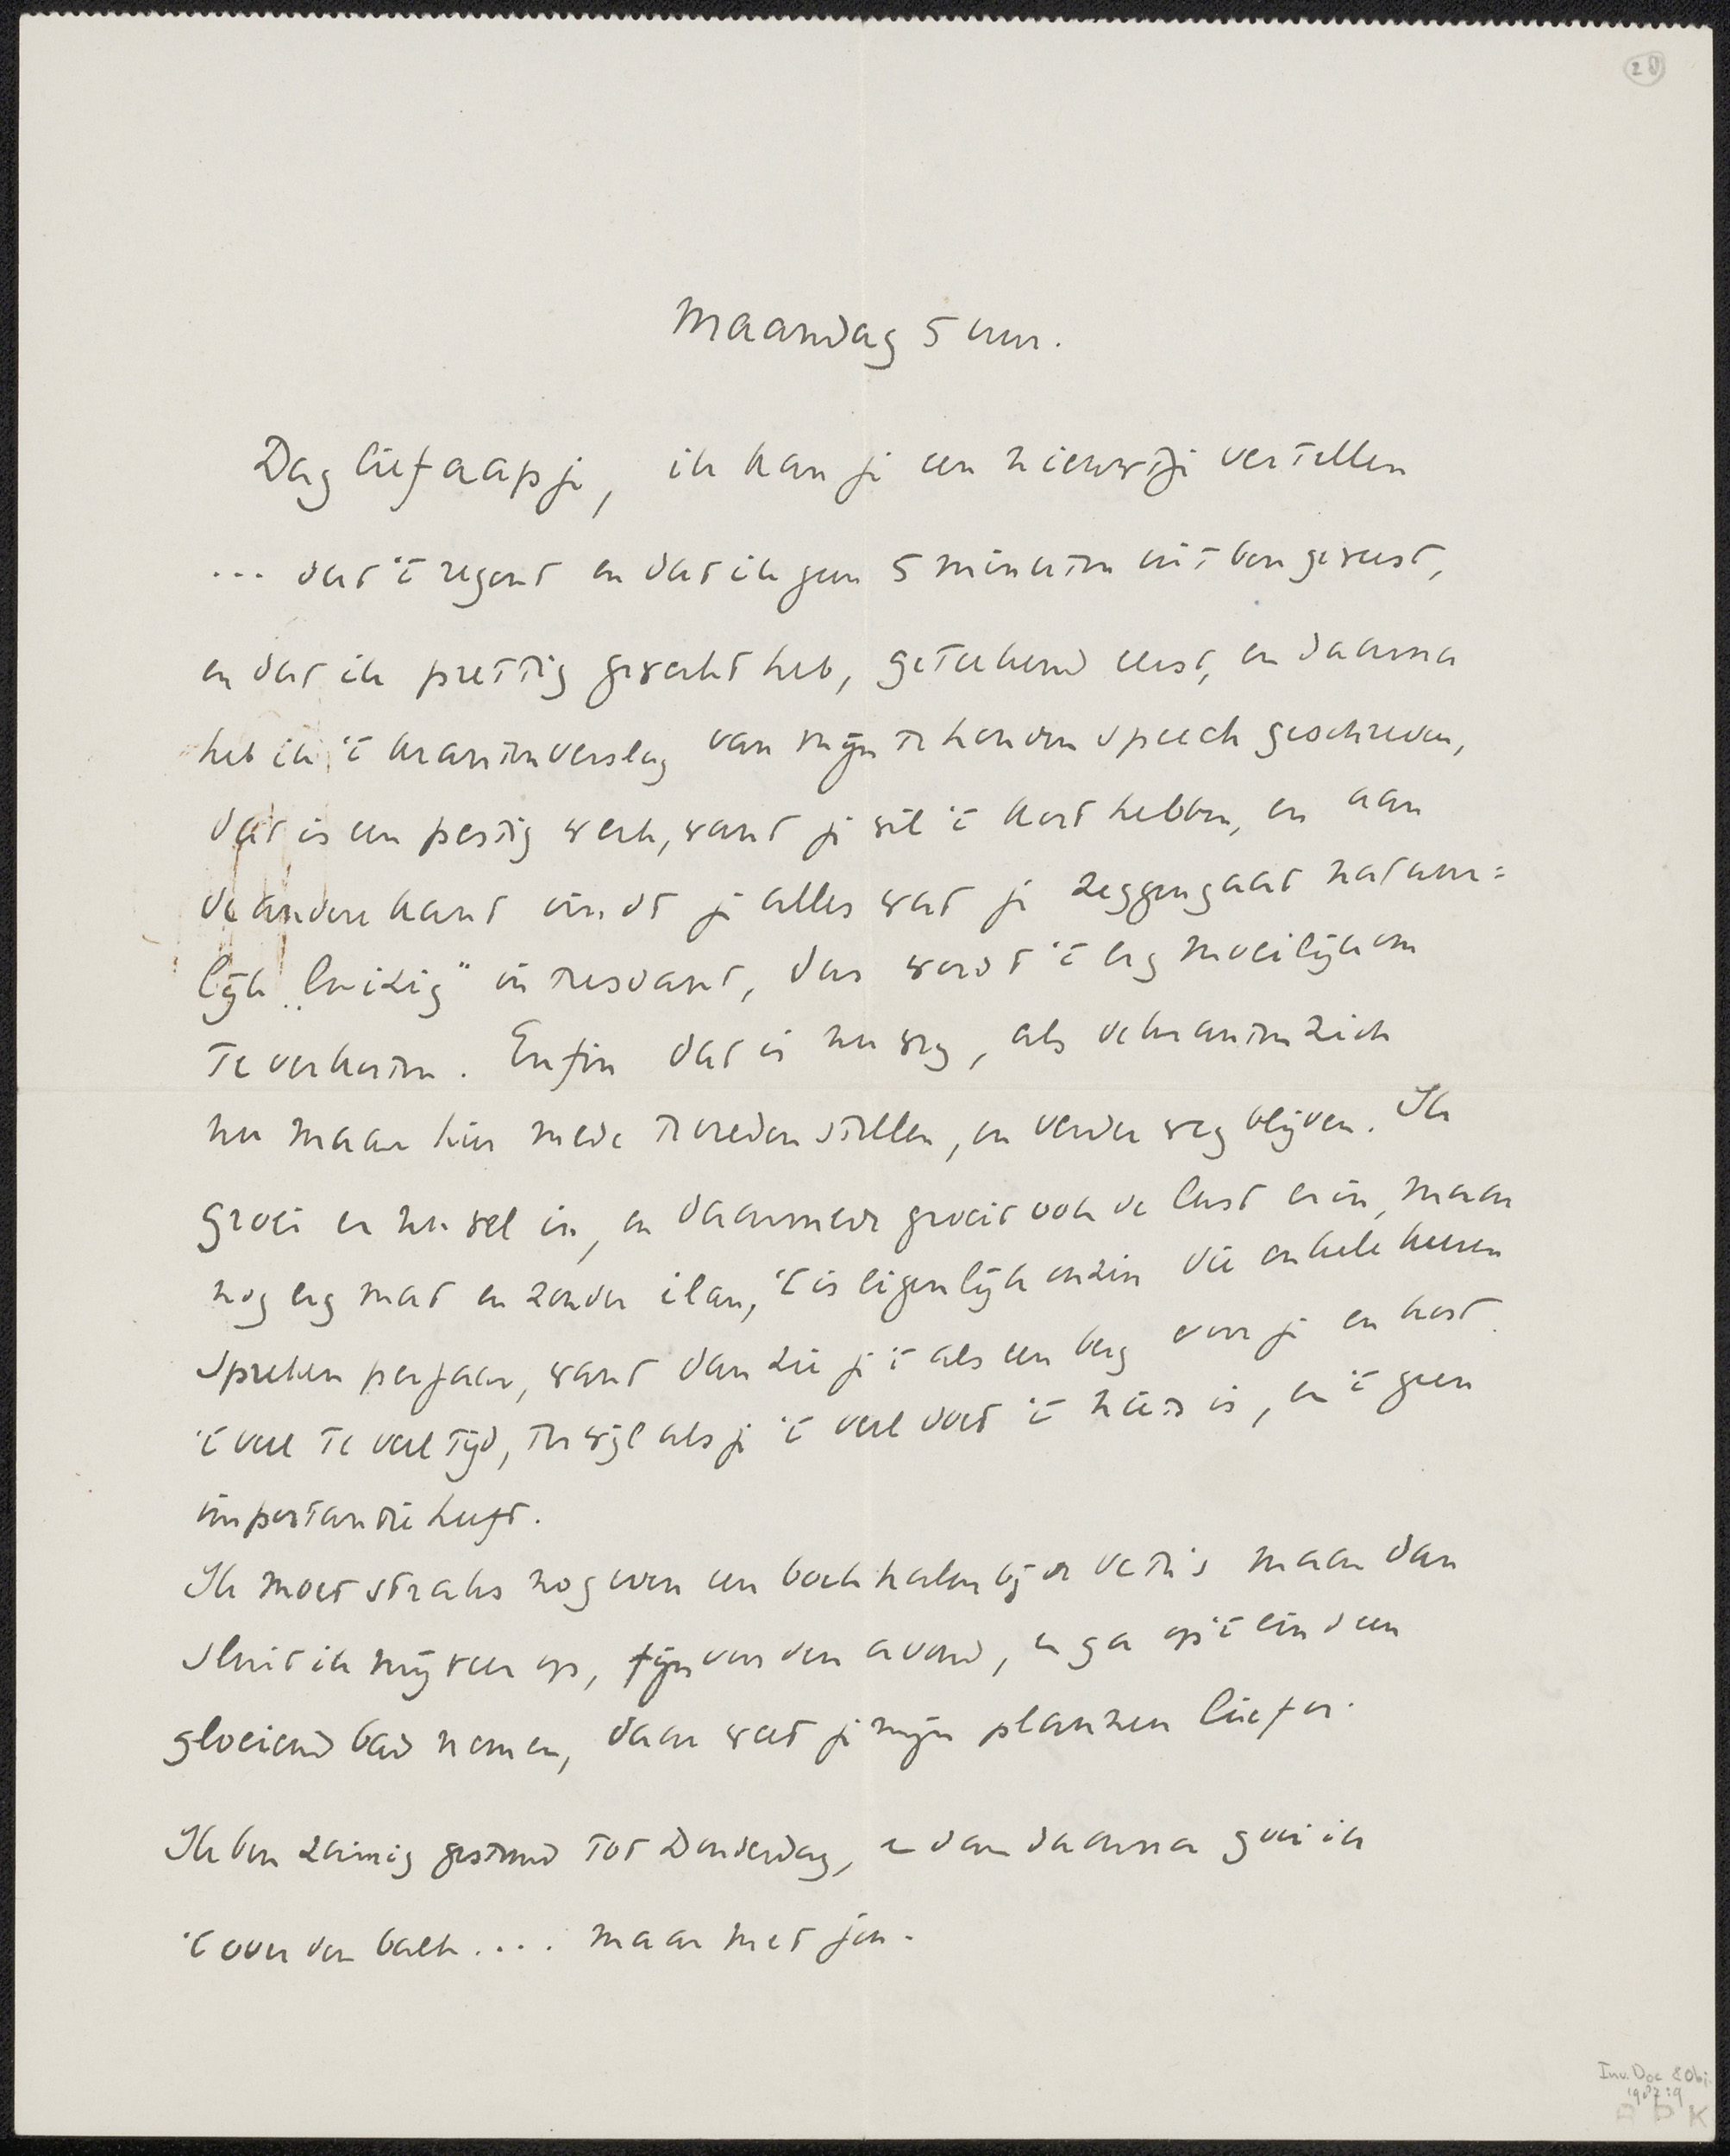 28
Maandag 5 uur.
Dag lief aapje, ik kan je een nieuwtje vertellen
... dat 't regent en dat ik geen 5 minuten uit ben geweest,
en dat ik prettig gewerkt heb, geteekend eerst, en daarna
heb ik 't krantenverslag van mijn te houden speech geschreven,
dat is een pestig werk, want je wil 't kort hebben, en aan
de andere kant vindt je alles wat je zeggen gaat natuur=
lijk „ " intressant, dus wordt 't erg moeilijk om
te verkorten. Enfin dat is nu weg, als de kranten zich
nu maar hier mede tevreden stellen, en verder weg blijven. Ik
groei er nu wel in, en daarmede groeit ook de lust erin, maar
nog erg mat en zonder elan, 't is eigenlijk onzin die enkele keeren
spreken per jaar, want dan zie je 't als een berg voor je en kost
't veel te veel tijd, terwijl als je 't veel doet 't niets is, en 't geen
importantie heeft.
Ik moet straks nog even een boek halen bij maar dan
sluit ik mij weer op, fijn voor den avond, en ga op 't eind een
gloeiend bad nemen, daar weet je mijn plannen liefer.
Ik ben zuinig gestemd tot Donderdag, en dan daarna gooi ik
't over den balk .... maar met jou.
Inv. Doc & Obj.
1987:9
R D K